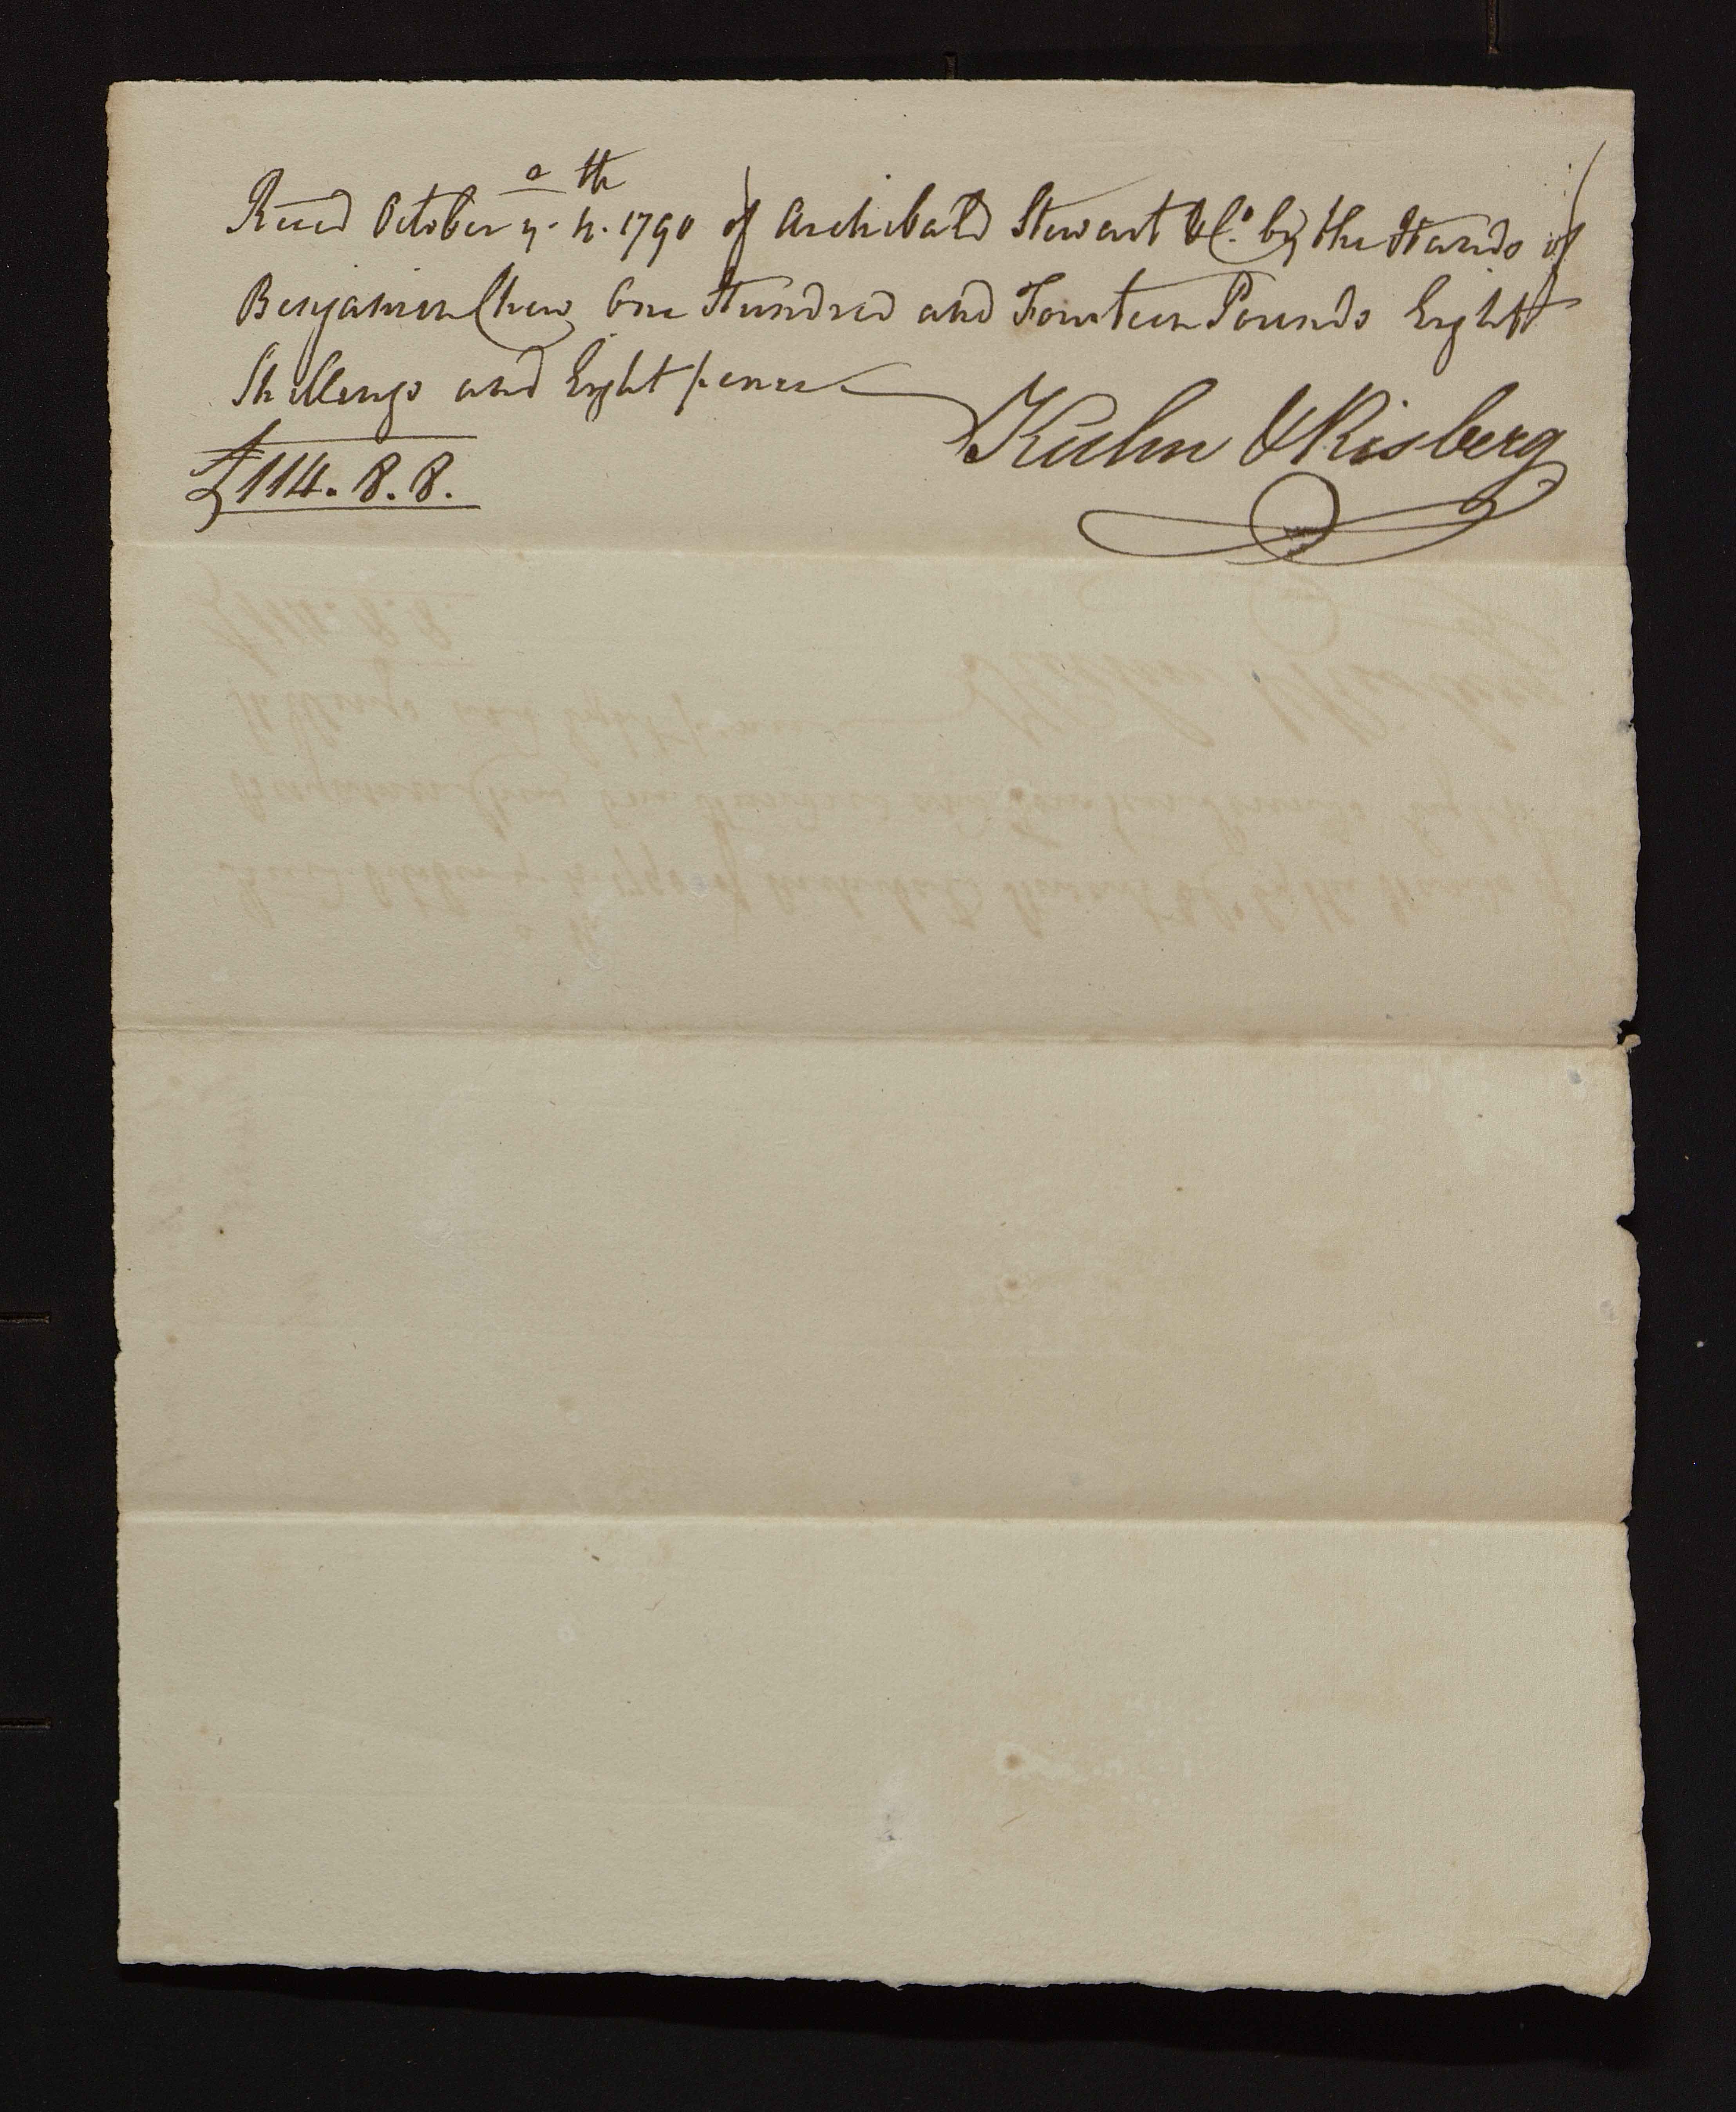 Rec'd October 1790 of Archibald Stewart & Co. by the Hands of
Benjamin Chew One Hundred and Fourteen Pounds Eight
Shillings and Eight pence
Kuhn & Risberg
£114. 8. 8.